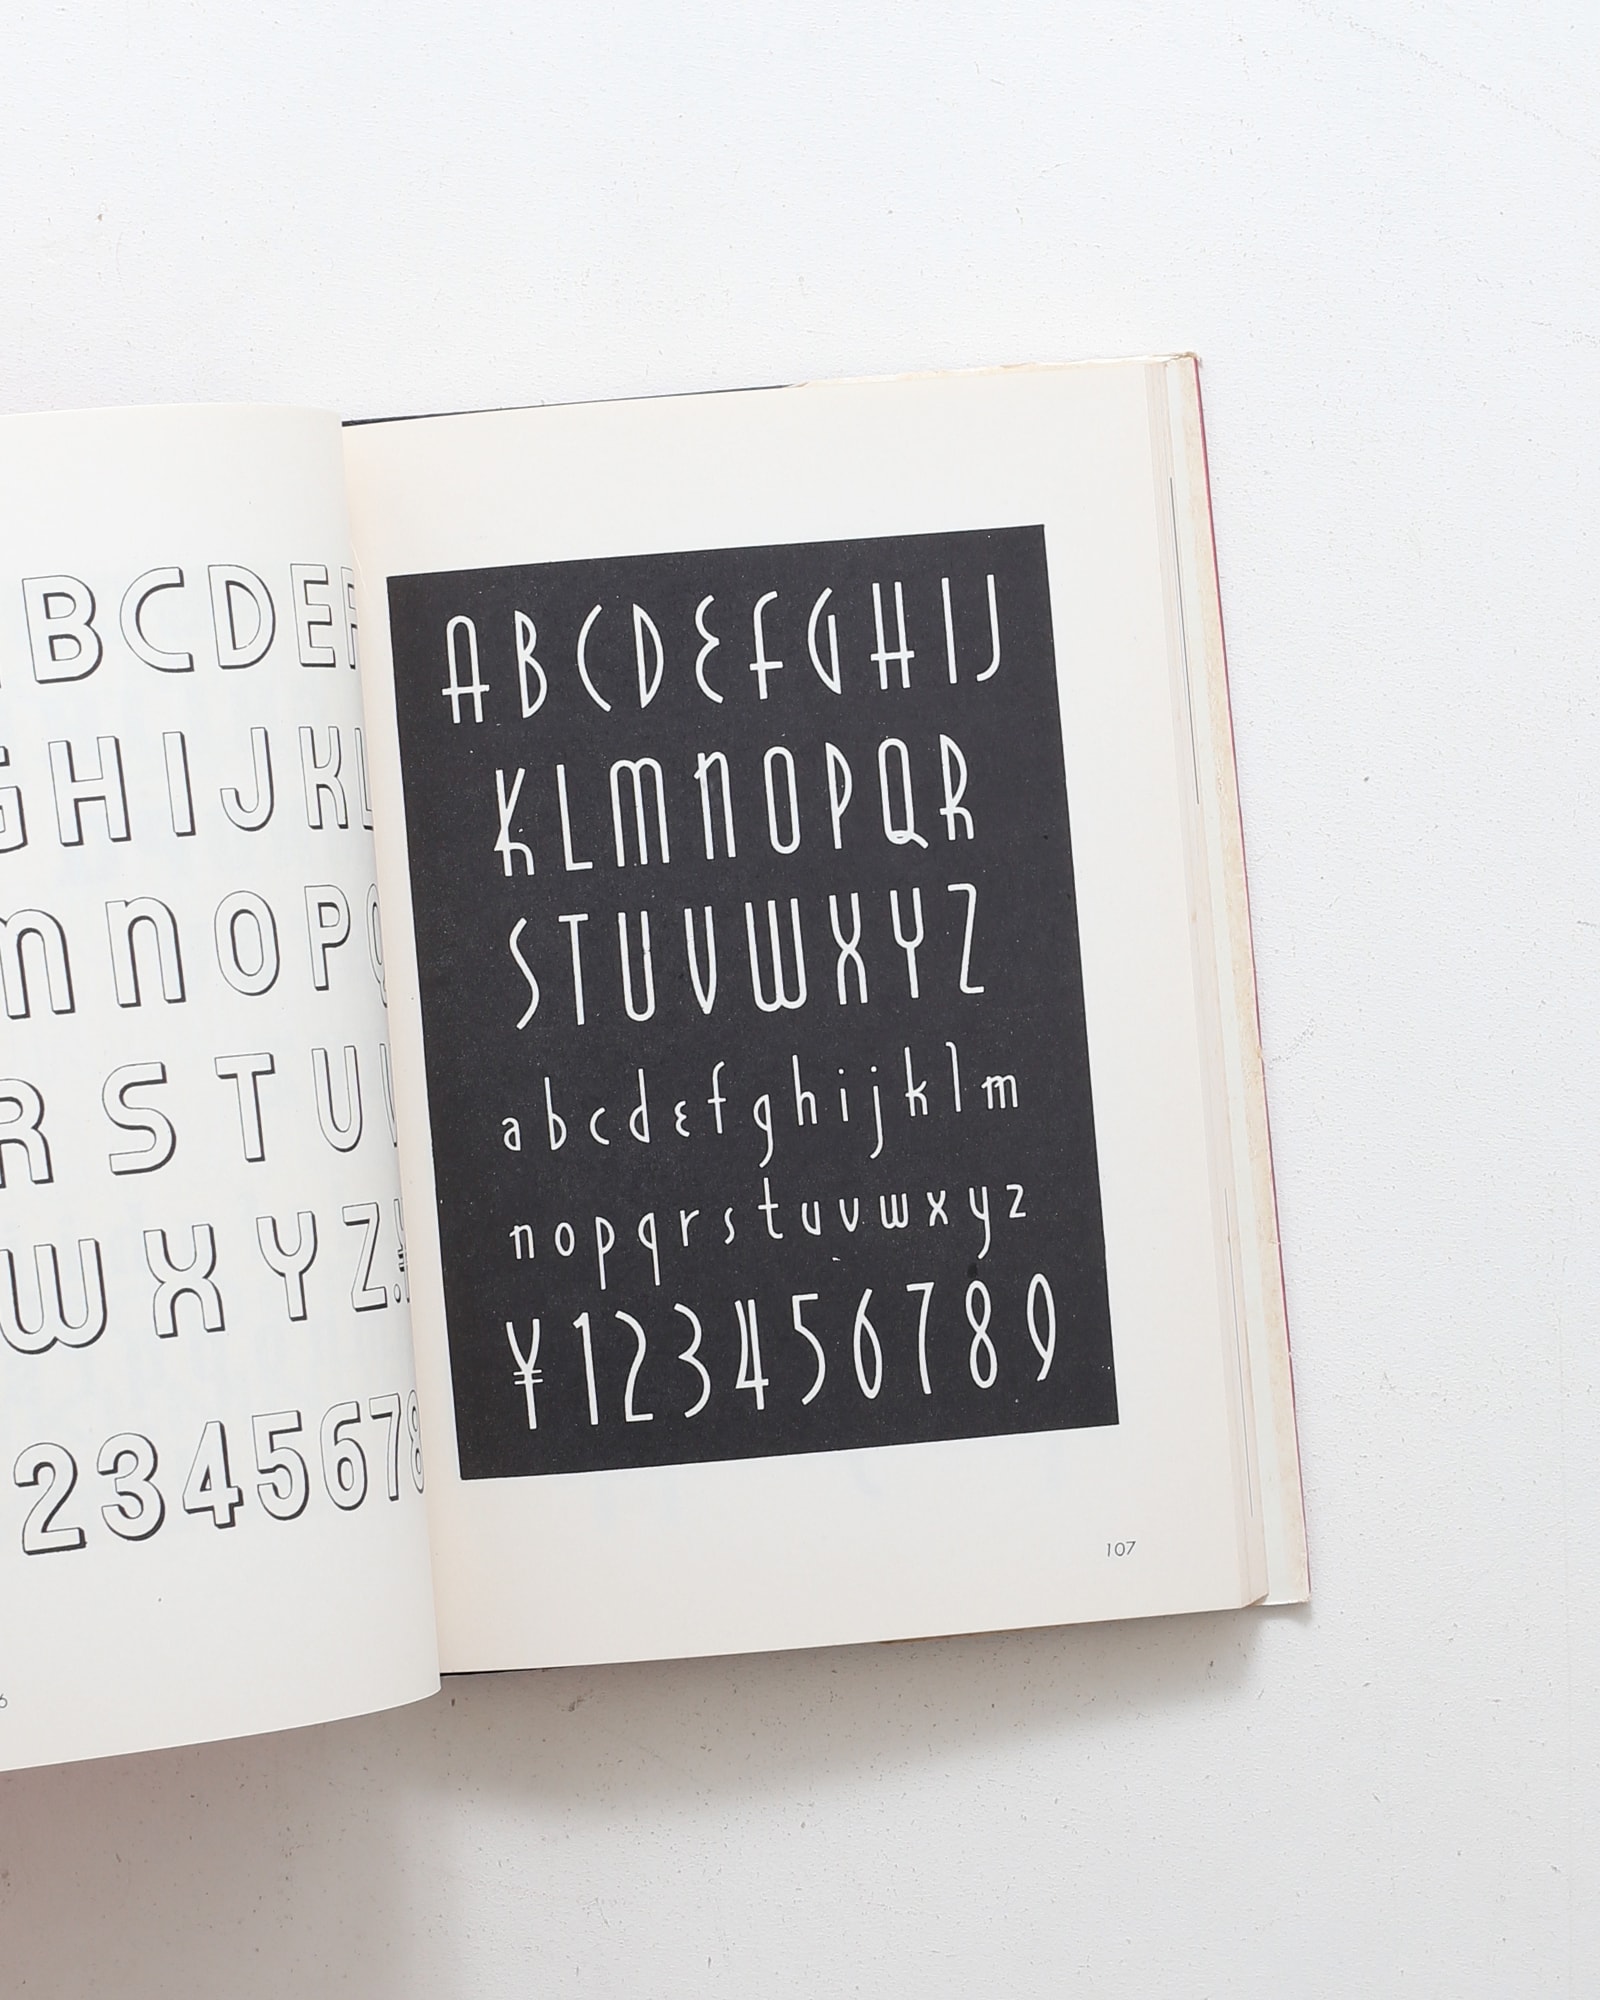 BCDEF
GHIJKL
mnOPQ
RSTUV
WXYZ!
2345678
6
ABCDEFGHIJ
KLMNOPQR
STUVWXYZ
abcdefghijklm
nopqrstuvwxyz
¥123456789
107